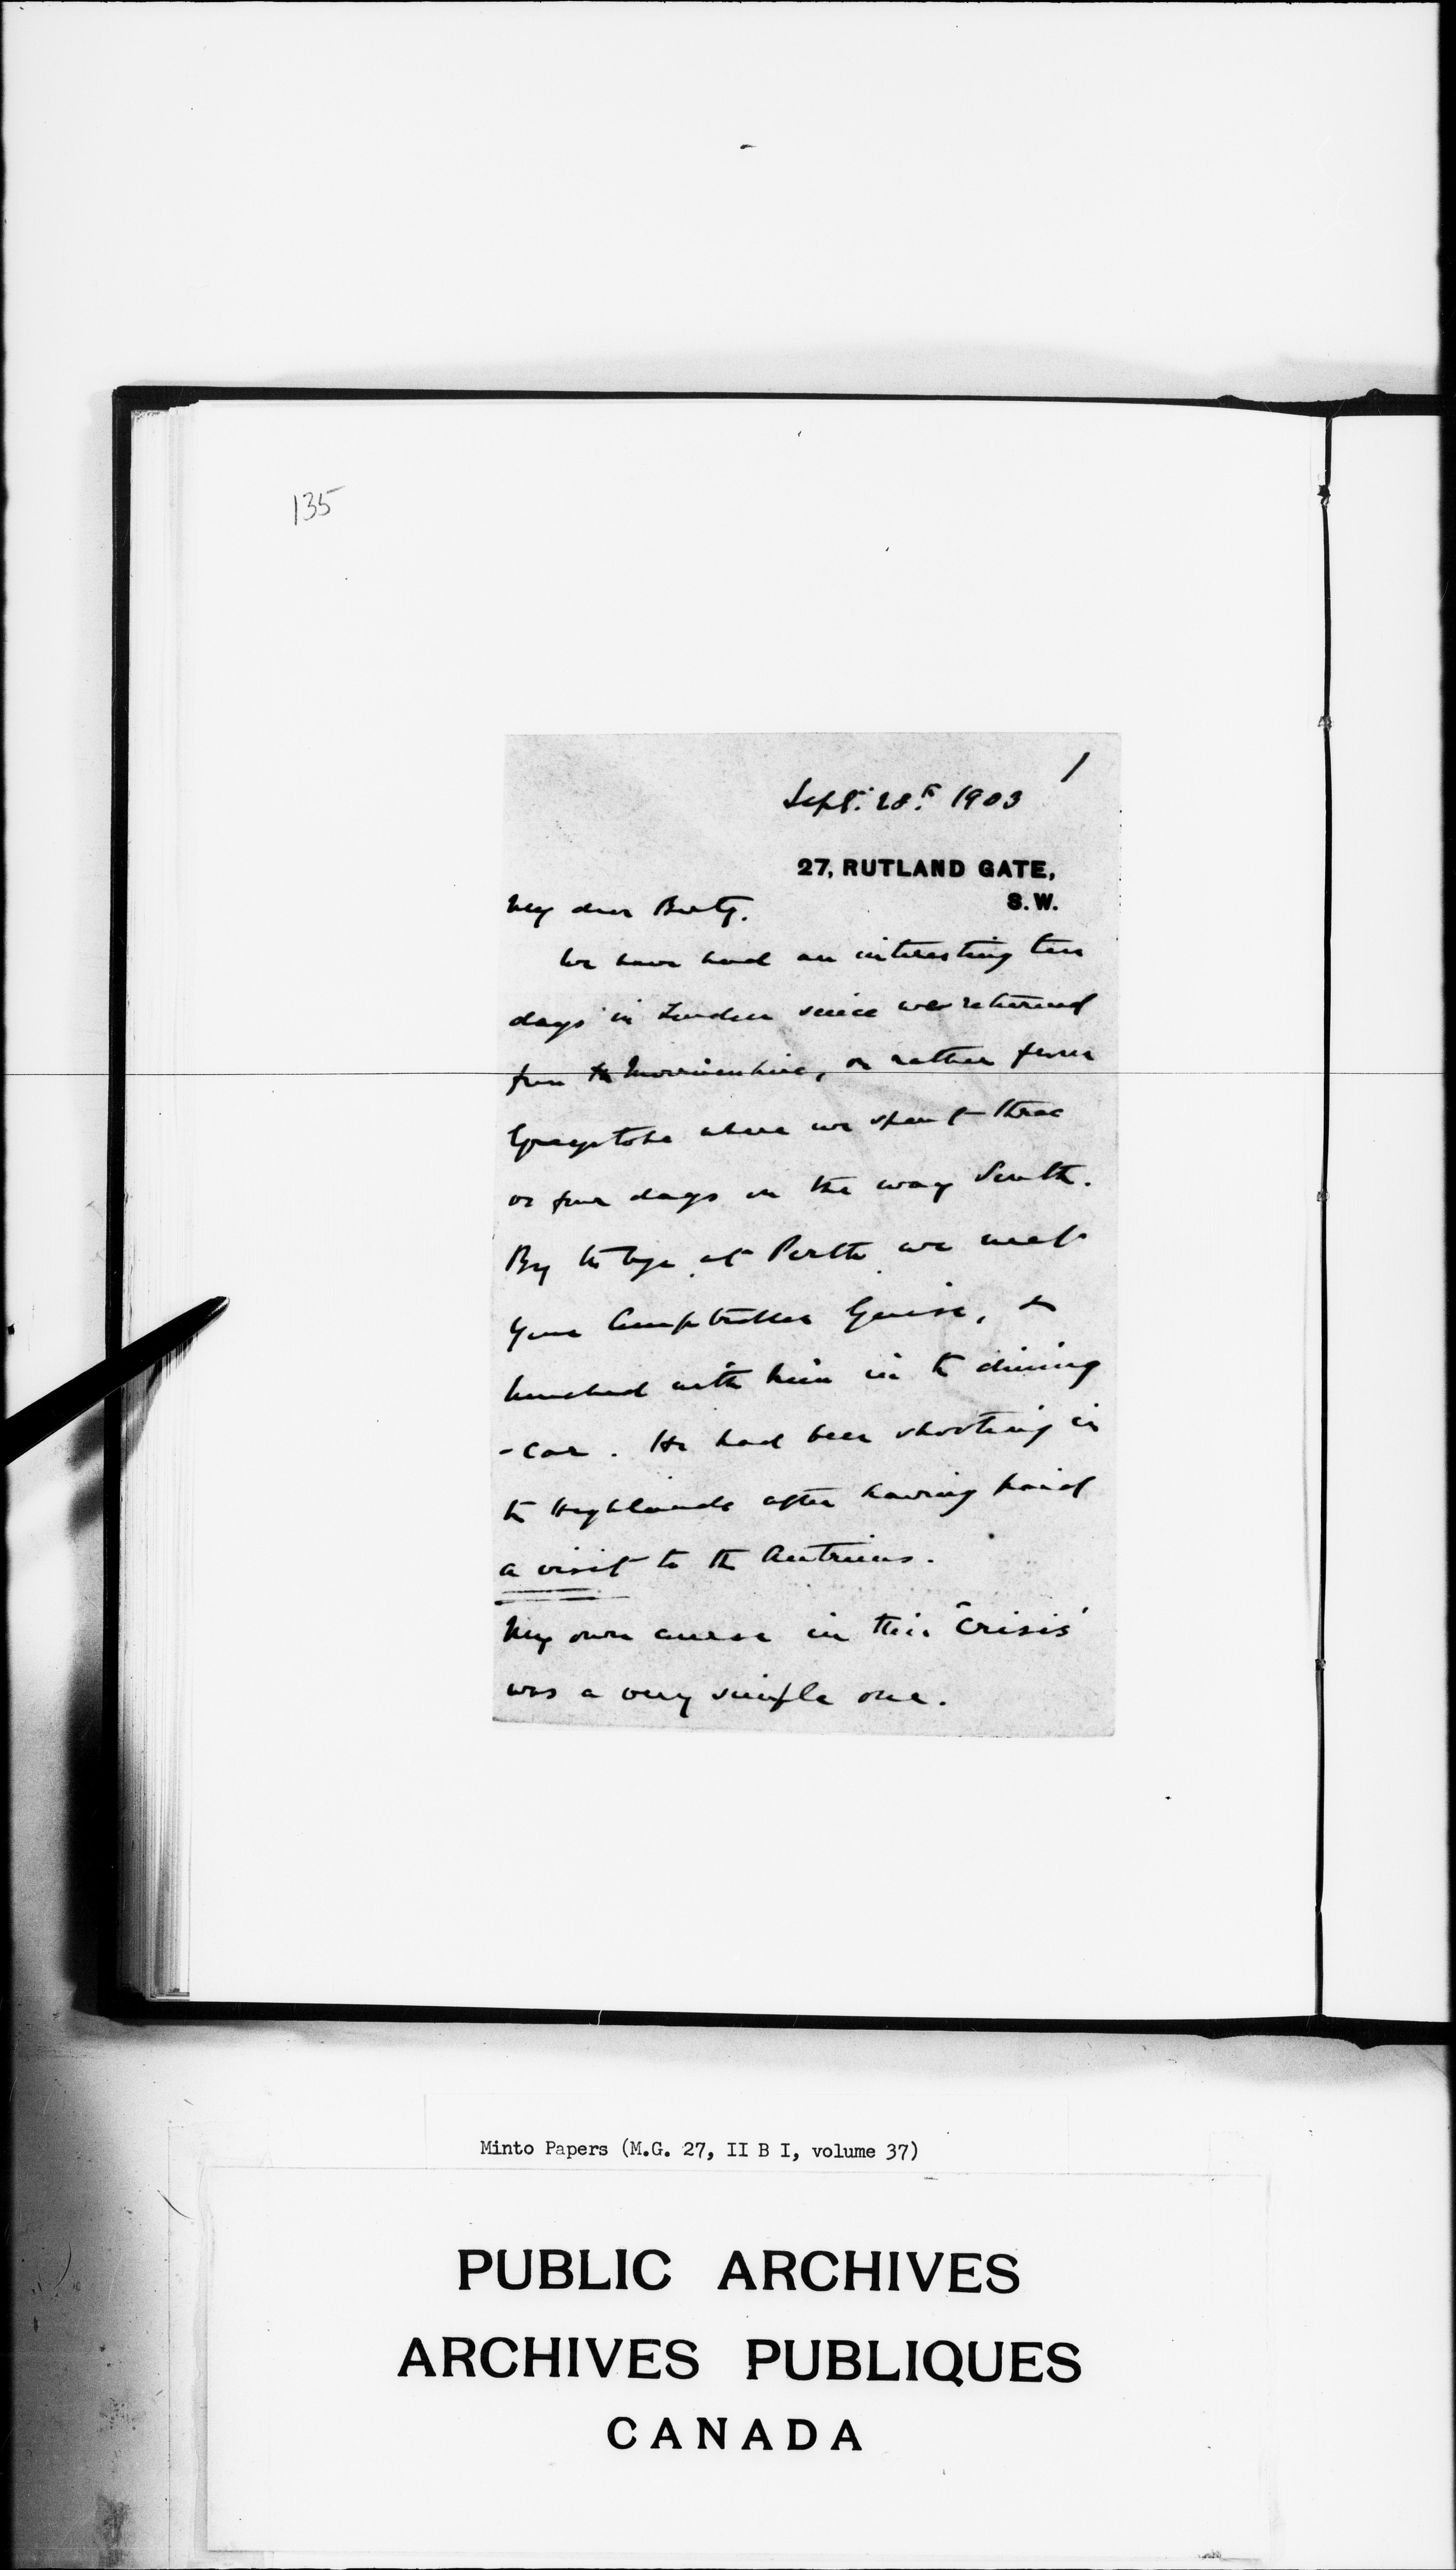 135
1
Sept. 28th 1903
27, RUTLAND GATE,
S.W.
My dear Berty.
We have had an interesting ten
days in London since we returned
from Morviemhire, or rather from
Greystoke where we spent three
or four days on the way South.
By the bye at Perth we met
your Comptroller Guise, &
lunched with him in the dining
-car. He had been shooting in
the Highlands after having paid
a visit to the Antrims.
My own course in this "Crisis"
was a very simple one.
Minto Papers (M.G. 27, II B I, volume 37)
PUBLIC ARCHIVES
ARCHIVES PUBLIQUES
CANADA